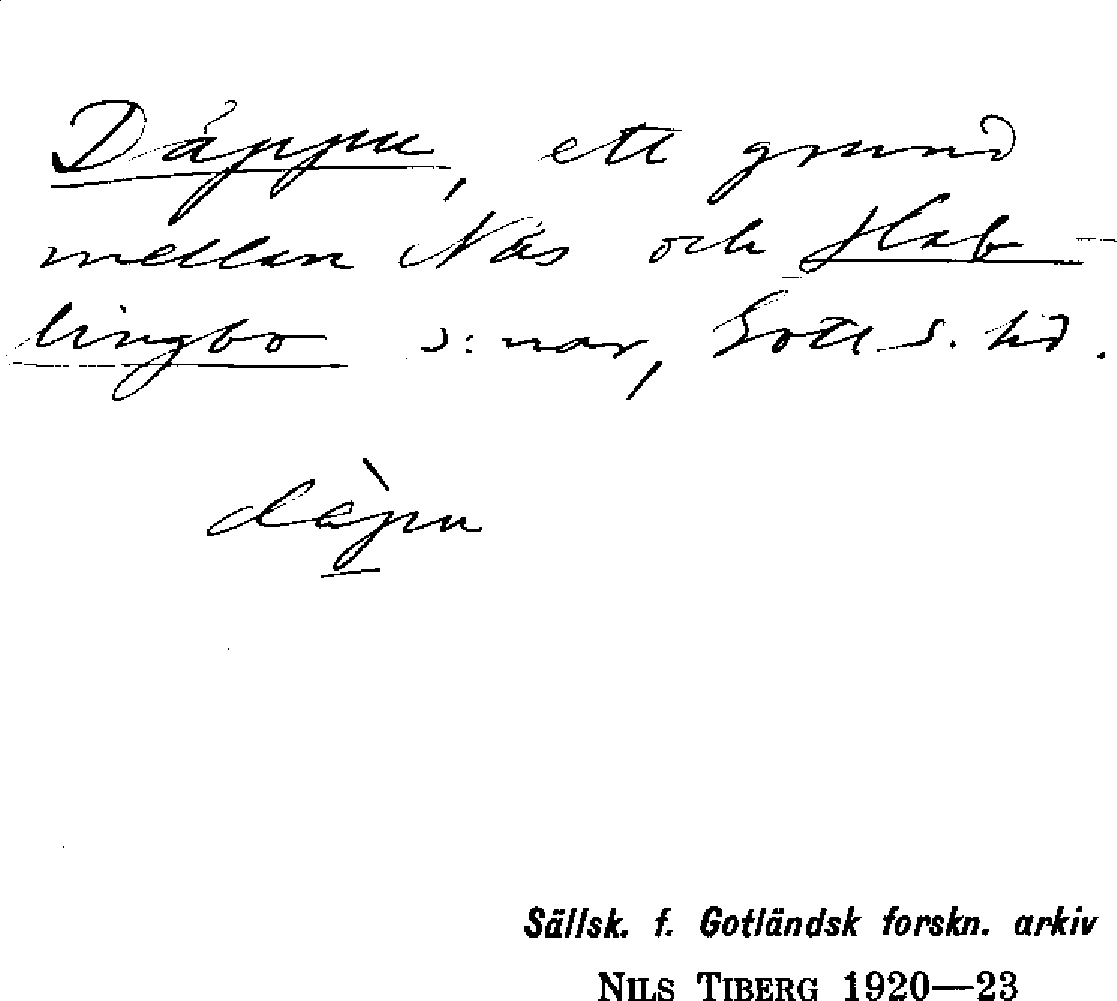 Däppu, ett grund
mellan Näs och Hab-
lingbo s:nar, Gotl. S. hd.
dàpu
Sällsk. f. Gotländsk forskn. arkiv
NILS TIBERG 1920—23